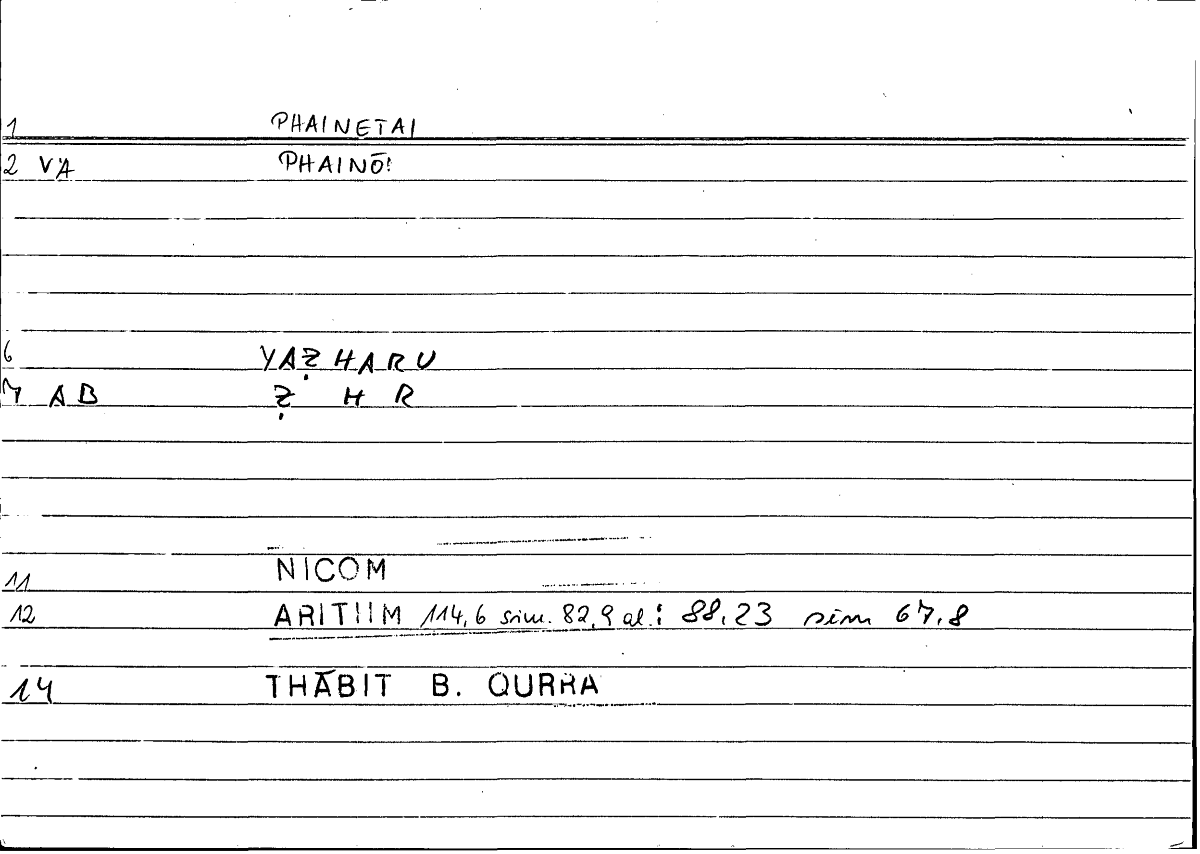 1 PHAINETAI
2 VA PHAINŌ!
6 YAẒHARU
7 AB Ẓ H R
11 NICOM
12 ARITHM 114,6 sim. 82,9 al.: 88,23 sim 67,8
14 THĀBIT B. QURRA